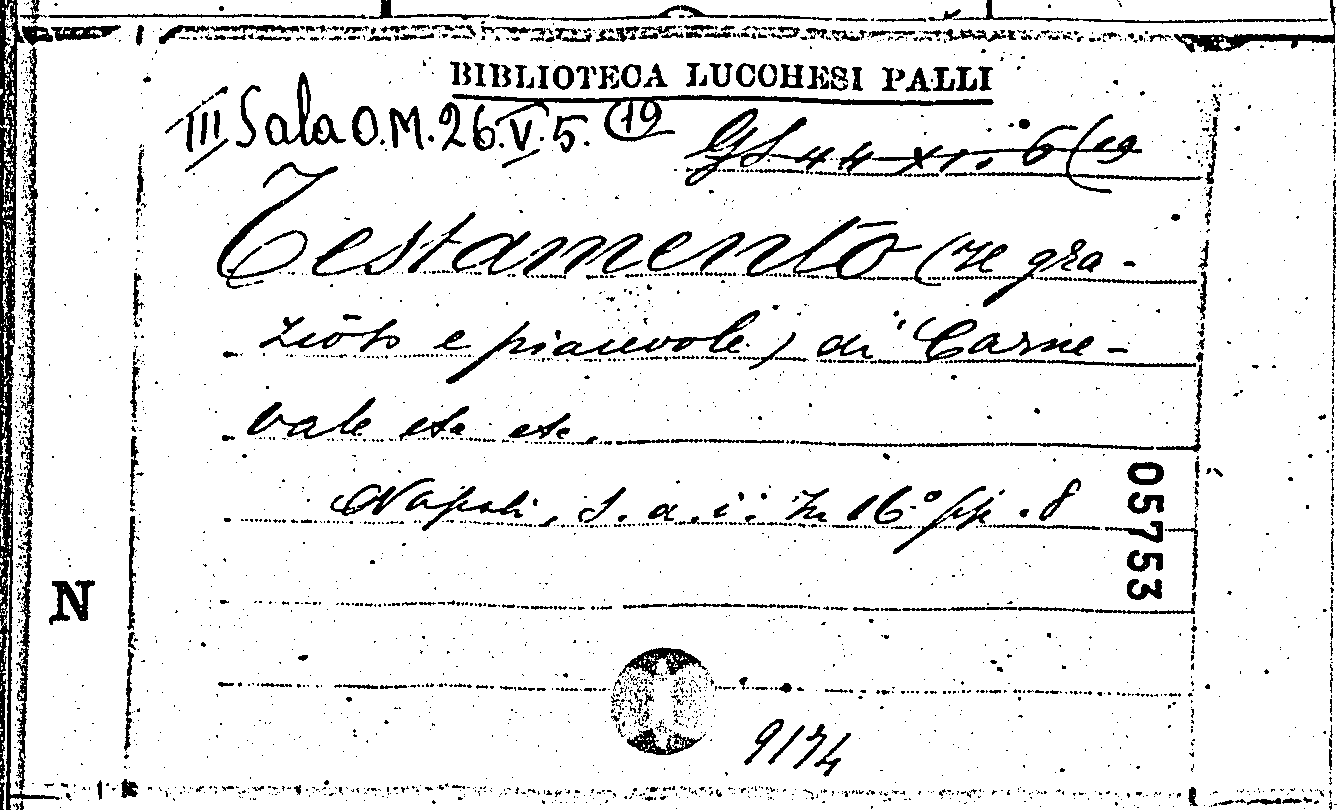 BIBLIOTECA LUCCHESI PALLI
III Sala O.M. 26.V.5.(19
GS 44 XI. 6(19
Testamento (re gra-
zioso e piacevole) di Carne-
vale etc etc.
Napoli, s. a. i: In 16° pp. 8
05753
N
9174